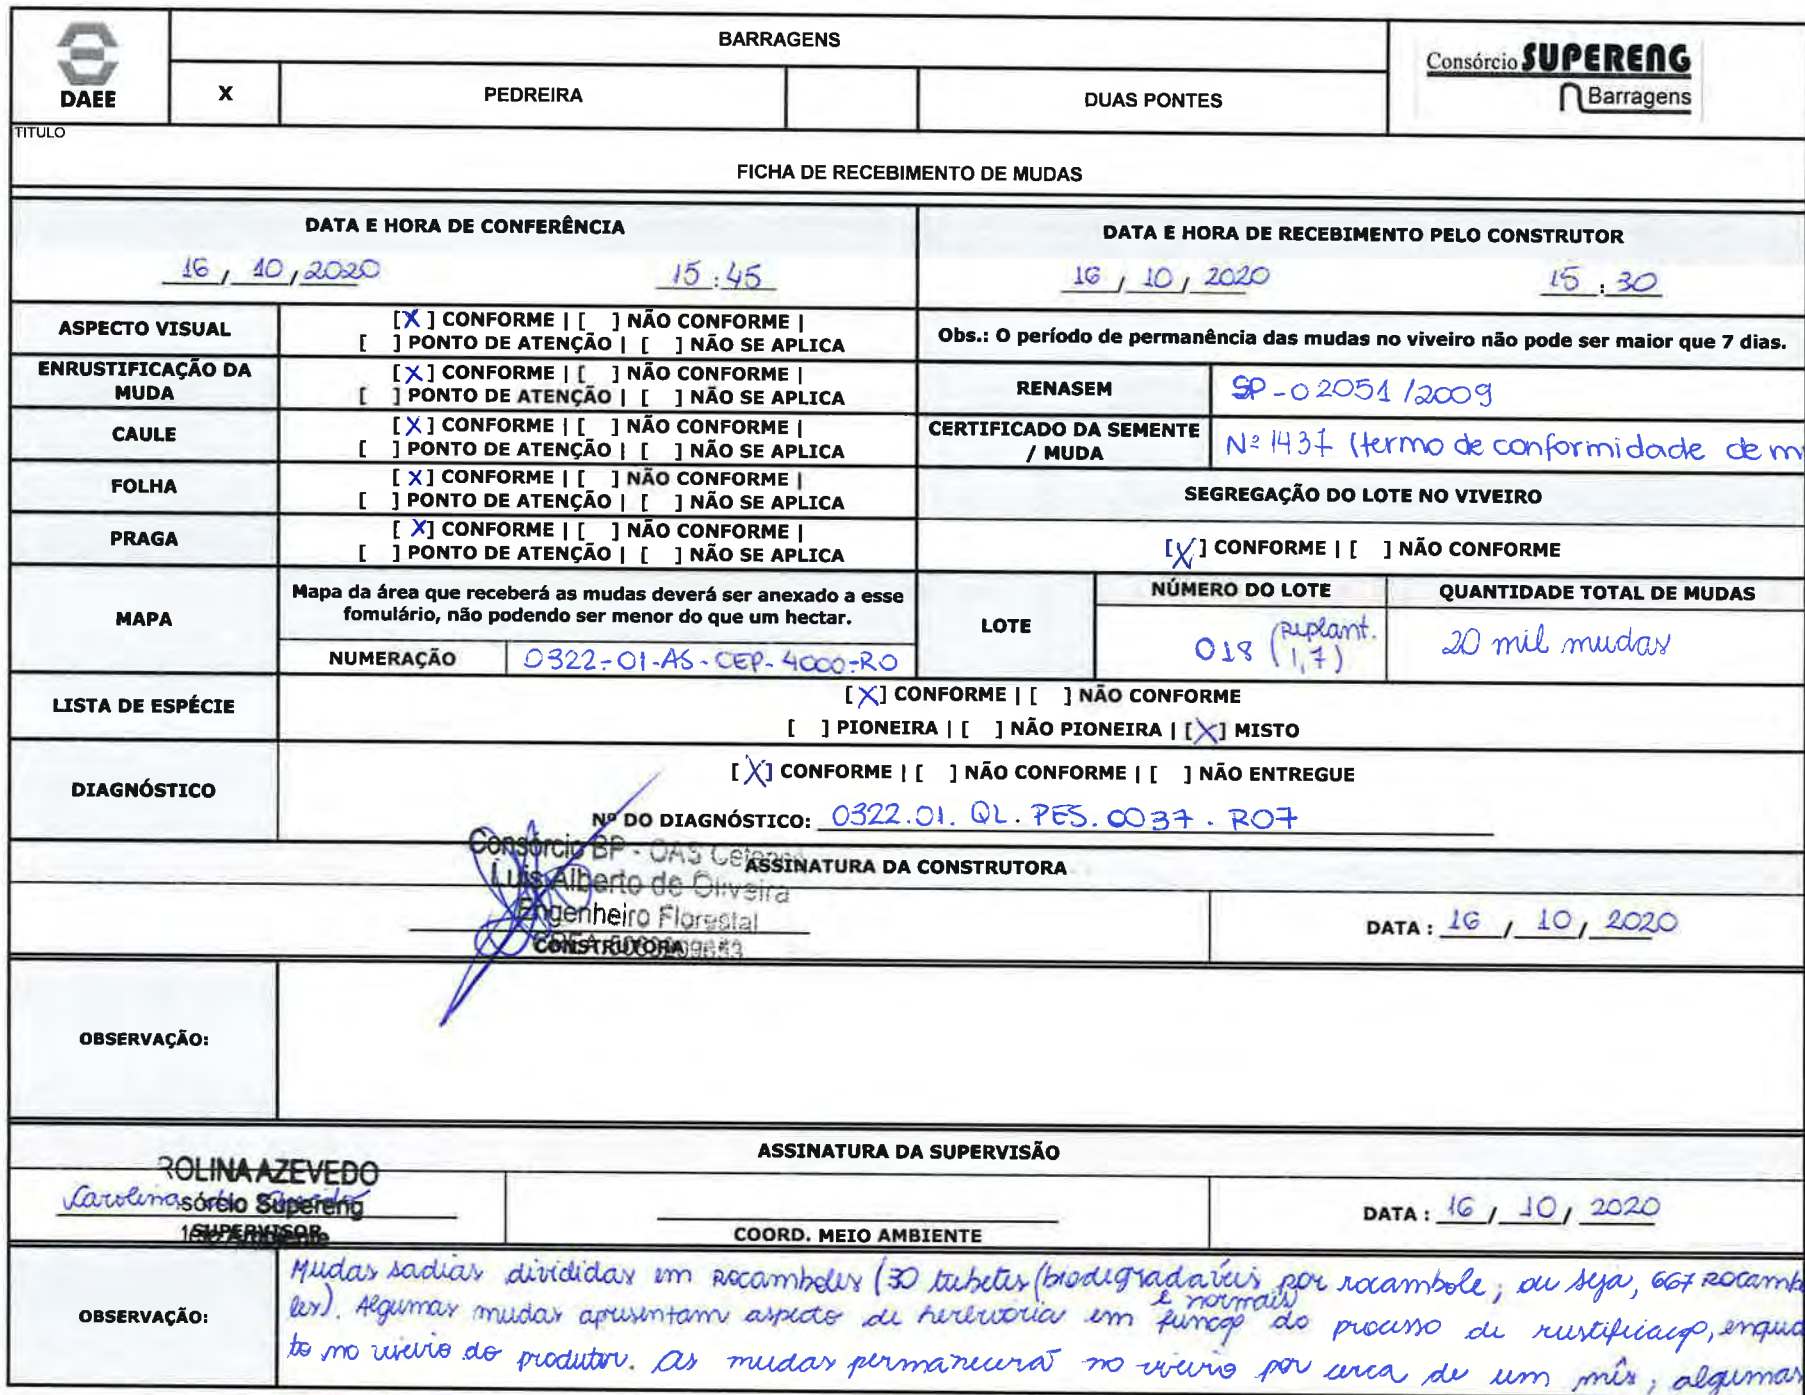 BARRAGENS
DAEE
X
PEDREIRA
DUAS PONTES
Consórcio SUPERENG
Barragens
TITULO
FICHA DE RECEBIMENTO DE MUDAS
DATA E HORA DE CONFERÊNCIA
16 / 10 / 2020 15:45
DATA E HORA DE RECEBIMENTO PELO CONSTRUTOR
16 / 10 / 2020 15:30
ASPECTO VISUAL
[X] CONFORME | [ ] NÃO CONFORME |
[ ] PONTO DE ATENÇÃO | [ ] NÃO SE APLICA
Obs.: O período de permanência das mudas no viveiro não pode ser maior que 7 dias.
ENRUSTIFICAÇÃO DA
MUDA
[X] CONFORME | [ ] NÃO CONFORME |
[ ] PONTO DE ATENÇÃO | [ ] NÃO SE APLICA
RENASEM
SP-02051/2009
CAULE
[X] CONFORME | [ ] NÃO CONFORME |
[ ] PONTO DE ATENÇÃO | [ ] NÃO SE APLICA
CERTIFICADO DA SEMENTE
/ MUDA
Nº 1437 (termo de conformidade de m
FOLHA
[X] CONFORME | [ ] NÃO CONFORME |
[ ] PONTO DE ATENÇÃO | [ ] NÃO SE APLICA
SEGREGAÇÃO DO LOTE NO VIVEIRO
PRAGA
[X] CONFORME | [ ] NÃO CONFORME |
[ ] PONTO DE ATENÇÃO | [ ] NÃO SE APLICA
[X] CONFORME | [ ] NÃO CONFORME
MAPA
Mapa da área que receberá as mudas deverá ser anexado a esse
fomulário, não podendo ser menor do que um hectar.
NUMERAÇÃO
0322-01-AS-CEP-4000-R0
LOTE
NÚMERO DO LOTE
018 (replant.
1,7)
QUANTIDADE TOTAL DE MUDAS
20 mil mudas
LISTA DE ESPÉCIE
[X] CONFORME | [ ] NÃO CONFORME
[ ] PIONEIRA | [ ] NÃO PIONEIRA | [X] MISTO
DIAGNÓSTICO
[X] CONFORME | [ ] NÃO CONFORME | [ ] NÃO ENTREGUE
Nº DO DIAGNÓSTICO: 0322.01.QL.PES.0037.R07
ASSINATURA DA CONSTRUTORA
Consórcio BP - OAS
Luis Alberto de Oliveira
Engenheiro Florestal
CONSTRUTORA
DATA : 16 / 10 / 2020
OBSERVAÇÃO:
ASSINATURA DA SUPERVISÃO
ROLINA AZEVEDO
Carolina
sórcio Supereng
SUPERVISOR
COORD. MEIO AMBIENTE
DATA : 16 / 10 / 2020
OBSERVAÇÃO:
Mudas sadias divididas em rocamboles (30 tubetes (biodegradáveis e normais por rocambole; ou seja, 667 rocambo
les). Algumas mudas apresentam aspecto de herbivoria em função do processo de rustificação, enqua
to no viveiro do produtor. As mudas permanecerá no viveiro por cerca de um mês, algumas